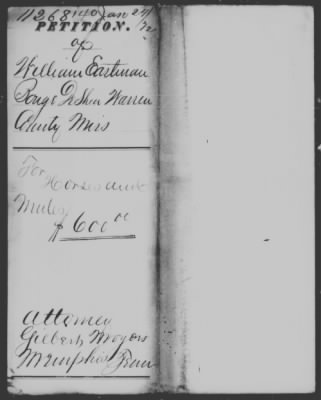 11268
Jan 24/72
PETITION.
of
William Eastman
Warren
County Miss
For
Horses and
Mules
$600.00
Attorney
Gilbert Moyers
Memphis Tenn